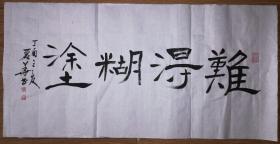 難得糊塗
丁酉之夏